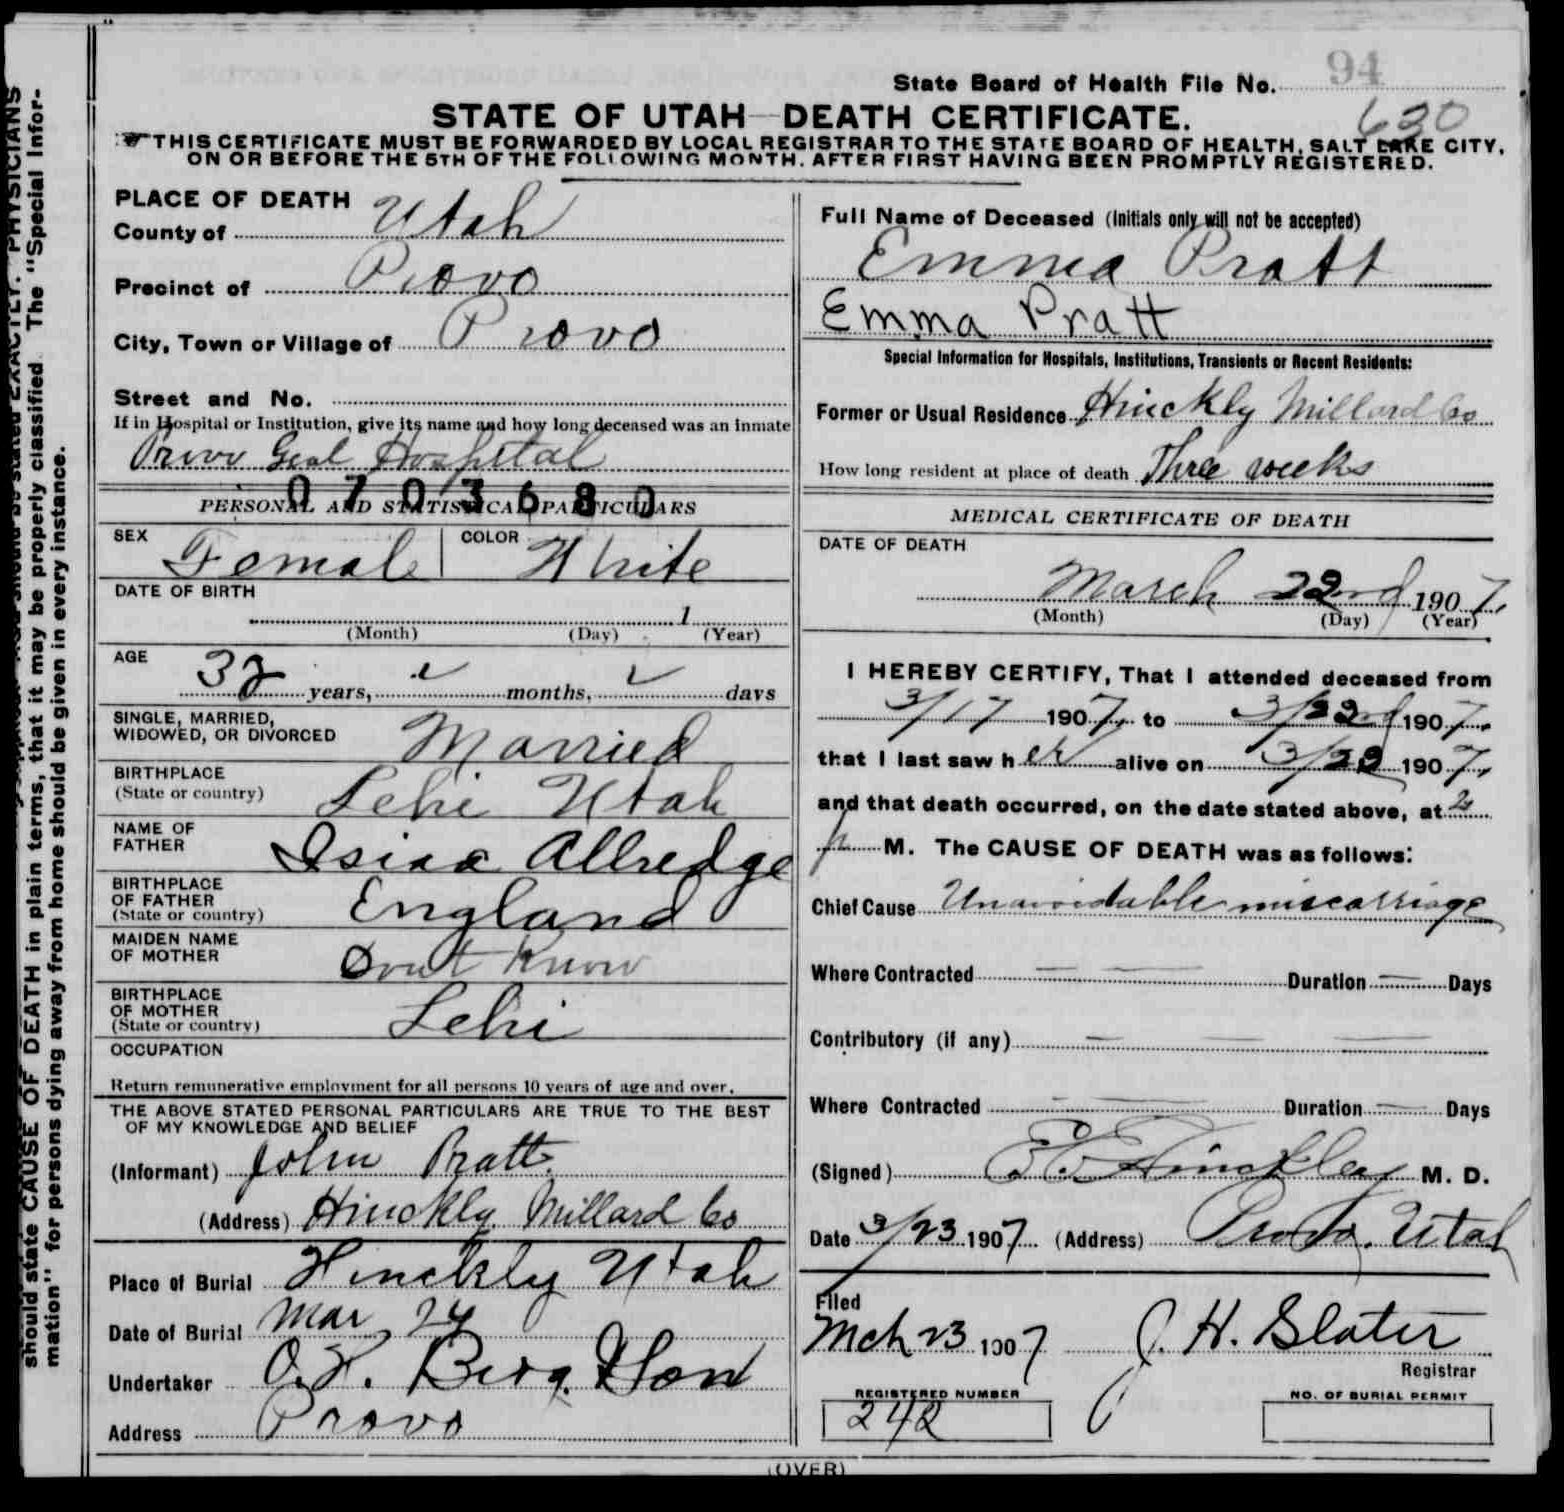 State Board of Health File No. 94
630
STATE OF UTAH—DEATH CERTIFICATE.
THIS CERTIFICATE MUST BE FORWARDED BY LOCAL REGISTRAR TO THE STATE BOARD OF HEALTH, SALT LAKE CITY,
ON OR BEFORE THE 5TH OF THE FOLLOWING MONTH. AFTER FIRST HAVING BEEN PROMPTLY REGISTERED.
PLACE OF DEATH
County of Utah
Precinct of Provo
City, Town or Village of Provo
Street and No.
If in Hospital or Institution, give its name and how long deceased was an inmate
Provo Genl Hospital
0703680
PERSONAL AND STATISTICAL PARTICULARS
SEX Female COLOR White
DATE OF BIRTH
1
(Month) (Day) (Year)
AGE
32 years, months, days
SINGLE, MARRIED,
WIDOWED, OR DIVORCED Married
BIRTHPLACE
(State or country) Lehi Utah
NAME OF
FATHER Isiaa Allredge
BIRTHPLACE
OF FATHER
(State or country) England
MAIDEN NAME
OF MOTHER Dont Know
BIRTHPLACE
OF MOTHER
(State or country) Lehi
OCCUPATION
Return remunerative employment for all persons 10 years of age and over.
THE ABOVE STATED PERSONAL PARTICULARS ARE TRUE TO THE BEST
OF MY KNOWLEDGE AND BELIEF
(Informant) John Pratt.
(Address) Hinckly Millard Co
Place of Burial Hinckly Utah
Date of Burial Mar 24
Undertaker O. H. Berg & Son
Address Provo
Full Name of Deceased (Initials only will not be accepted)
Emma Pratt
Emma Pratt
Special Information for Hospitals, Institutions, Transients or Recent Residents:
Former or Usual Residence Hinckly Millard Co
How long resident at place of death Three weeks
MEDICAL CERTIFICATE OF DEATH
DATE OF DEATH
March 22nd 1907.
(Month) (Day) (Year)
I HEREBY CERTIFY, That I attended deceased from
3/17 1907, to 3/22nd 1907.
that I last saw her alive on 3/22 1907,
and that death occurred, on the date stated above, at 2
p M. The CAUSE OF DEATH was as follows:
Chief Cause Unavoidable miscarriage
Where Contracted — — Duration — Days
Contributory (if any) — — —
Where Contracted — — Duration — Days
(Signed) Hinckley M. D.
Date 3/23 1907. (Address) Provo, Utah
Filed
Mch 23 1907 J. H. Slater
Registrar
REGISTERED NUMBER
242
NO. OF BURIAL PERMIT
(OVER)
should state CAUSE OF DEATH in plain terms, that it may be properly classified. The "Special Infor-
mation" for persons dying away from home should be given in every instance.